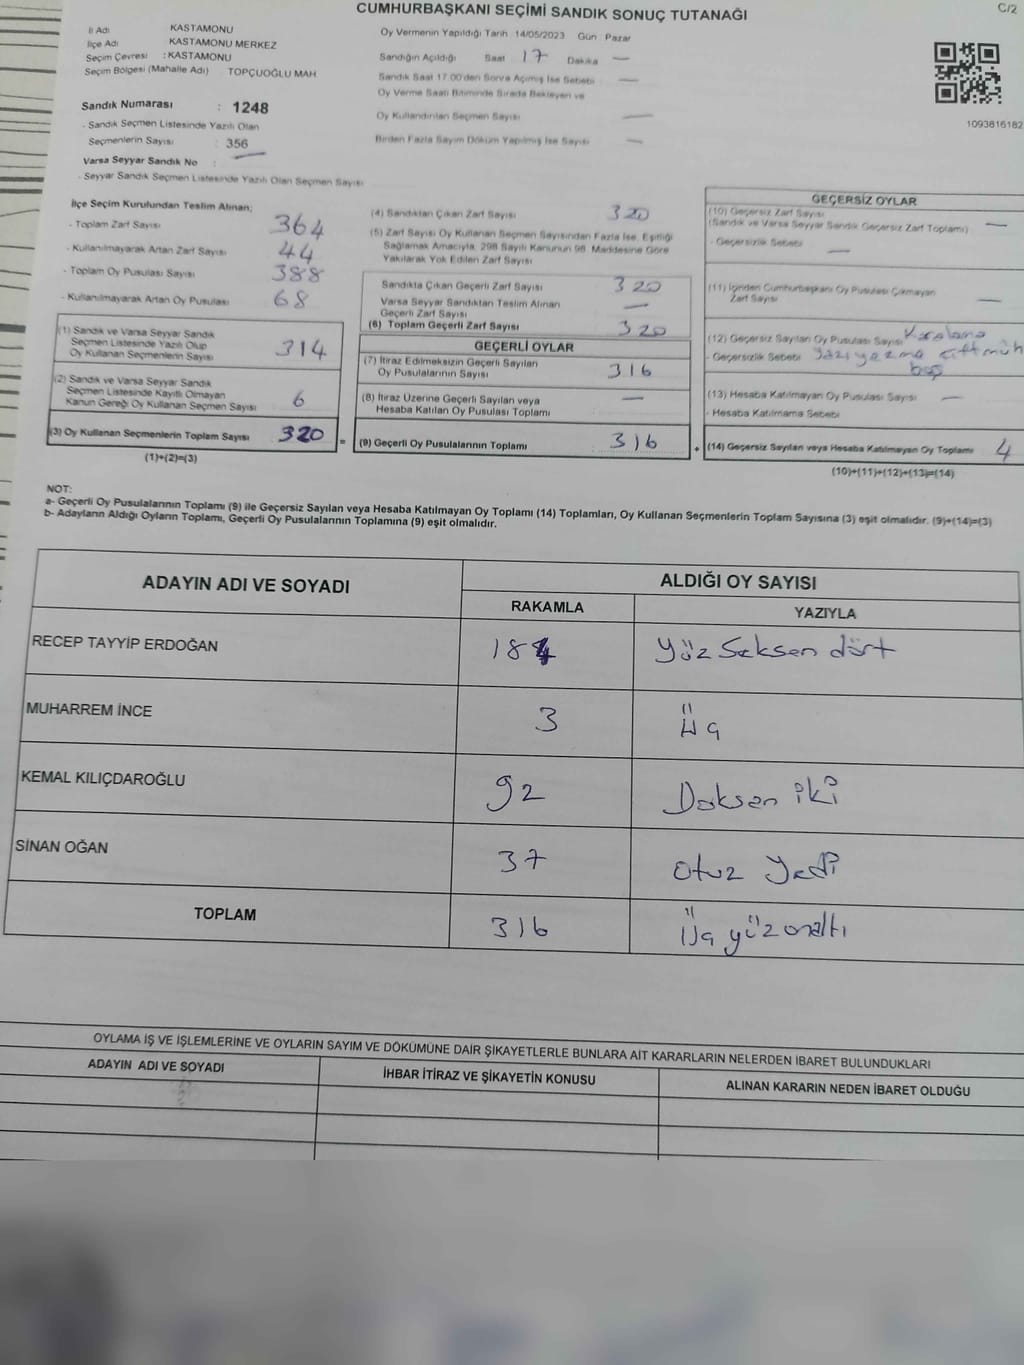 C/2
CUMHURBAŞKANI SEÇİMİ SANDIK SONUÇ TUTANAĞI
İl Adı KASTAMONU
İlçe Adı KASTAMONU MERKEZ
Seçim Çevresi : KASTAMONU
Seçim Bölgesi (Mahalle Adı) TOPÇUOĞLU MAH
Sandık Numarası : 1248
- Sandık Seçmen Listesinde Yazılı Olan
Seçmenlerin Sayısı : 356
Varsa Seyyar Sandık No : —
- Seyyar Sandık Seçmen Listesinde Yazılı Olan Seçmen Sayısı
Oy Vermenin Yapıldığı Tarih 14/05/2023 Gün Pazar
Sandığın Açıldığı Saat 17 Dakika —
Sandık Saat 17:00'den Sonra Açılmış İse Sebebi —
Oy Verme Saati Bitiminde Sırada Bekleyen ve
Oy Kullandırılan Seçmen Sayısı —
Birden Fazla Sayım Döküm Yapılmış İse Sayısı —
1093816182
İlçe Seçim Kurulundan Teslim Alınan;
- Toplam Zarf Sayısı 364
- Kullanılmayarak Artan Zarf Sayısı 44
- Toplam Oy Pusulası Sayısı 388
- Kullanılmayarak Artan Oy Pusulası 68
(1) Sandık ve Varsa Seyyar Sandık
Seçmen Listesinde Yazılı Olup
Oy Kullanan Seçmenlerin Sayısı 314
(2) Sandık ve Varsa Seyyar Sandık
Seçmen Listesinde Kayıtlı Olmayan
Kanun Gereği Oy Kullanan Seçmen Sayısı 6
(3) Oy Kullanan Seçmenlerin Toplam Sayısı 320 =
(1)+(2)=(3)
(4) Sandıktan Çıkan Zarf Sayısı 320
(5) Zarf Sayısı Oy Kullanan Seçmen Sayısından Fazla İse, Eşitliği
Sağlamak Amacıyla, 298 Sayılı Kanunun 98. Maddesine Göre
Yakılarak Yok Edilen Zarf Sayısı
Sandıkta Çıkan Geçerli Zarf Sayısı 320
Varsa Seyyar Sandıktan Teslim Alınan
Geçerli Zarf Sayısı —
(6) Toplam Geçerli Zarf Sayısı 320
GEÇERLİ OYLAR
(7) İtiraz Edilmeksizin Geçerli Sayılan
Oy Pusulalarının Sayısı 316
(8) İtiraz Üzerine Geçerli Sayılan veya
Hesaba Katılan Oy Pusulası Toplamı —
(9) Geçerli Oy Pusulalarının Toplamı 316 +
GEÇERSİZ OYLAR
(10) Geçersiz Zarf Sayısı
(Sandık ve Varsa Seyyar Sandık Geçersiz Zarf Toplamı) —
- Geçersizlik Sebebi —
(11) İçinden Cumhurbaşkanı Oy Pusulası Çıkmayan
Zarf Sayısı —
(12) Geçersiz Sayılan Oy Pusulası Sayısı Karalama
- Geçersizlik Sebebi yazı yazma çift müh
boş
(13) Hesaba Katılmayan Oy Pusulası Sayısı —
- Hesaba Katılmama Sebebi
(14) Geçersiz Sayılan veya Hesaba Katılmayan Oy Toplamı 4
(10)+(11)+(12)+(13)=(14)
NOT:
a- Geçerli Oy Pusulalarının Toplamı (9) ile Geçersiz Sayılan veya Hesaba Katılmayan Oy Toplamı (14) Toplamları, Oy Kullanan Seçmenlerin Toplam Sayısına (3) eşit olmalıdır. (9)+(14)=(3)
b- Adayların Aldığı Oyların Toplamı, Geçerli Oy Pusulalarının Toplamına (9) eşit olmalıdır.
ADAYIN ADI VE SOYADI ALDIĞI OY SAYISI
RAKAMLA YAZIYLA
RECEP TAYYİP ERDOĞAN 184 Yüz Seksen dört
MUHARREM İNCE 3 Üç
KEMAL KILIÇDAROĞLU 92 Doksan iki
SİNAN OĞAN 37 Otuz Yedi
TOPLAM 316 Üç yüz onaltı
OYLAMA İŞ VE İŞLEMLERİNE VE OYLARIN SAYIM VE DÖKÜMÜNE DAİR ŞİKAYETLERLE BUNLARA AİT KARARLARIN NELERDEN İBARET BULUNDUKLARI
ADAYIN ADI VE SOYADI İHBAR İTİRAZ VE ŞİKAYETİN KONUSU ALINAN KARARIN NEDEN İBARET OLDUĞU